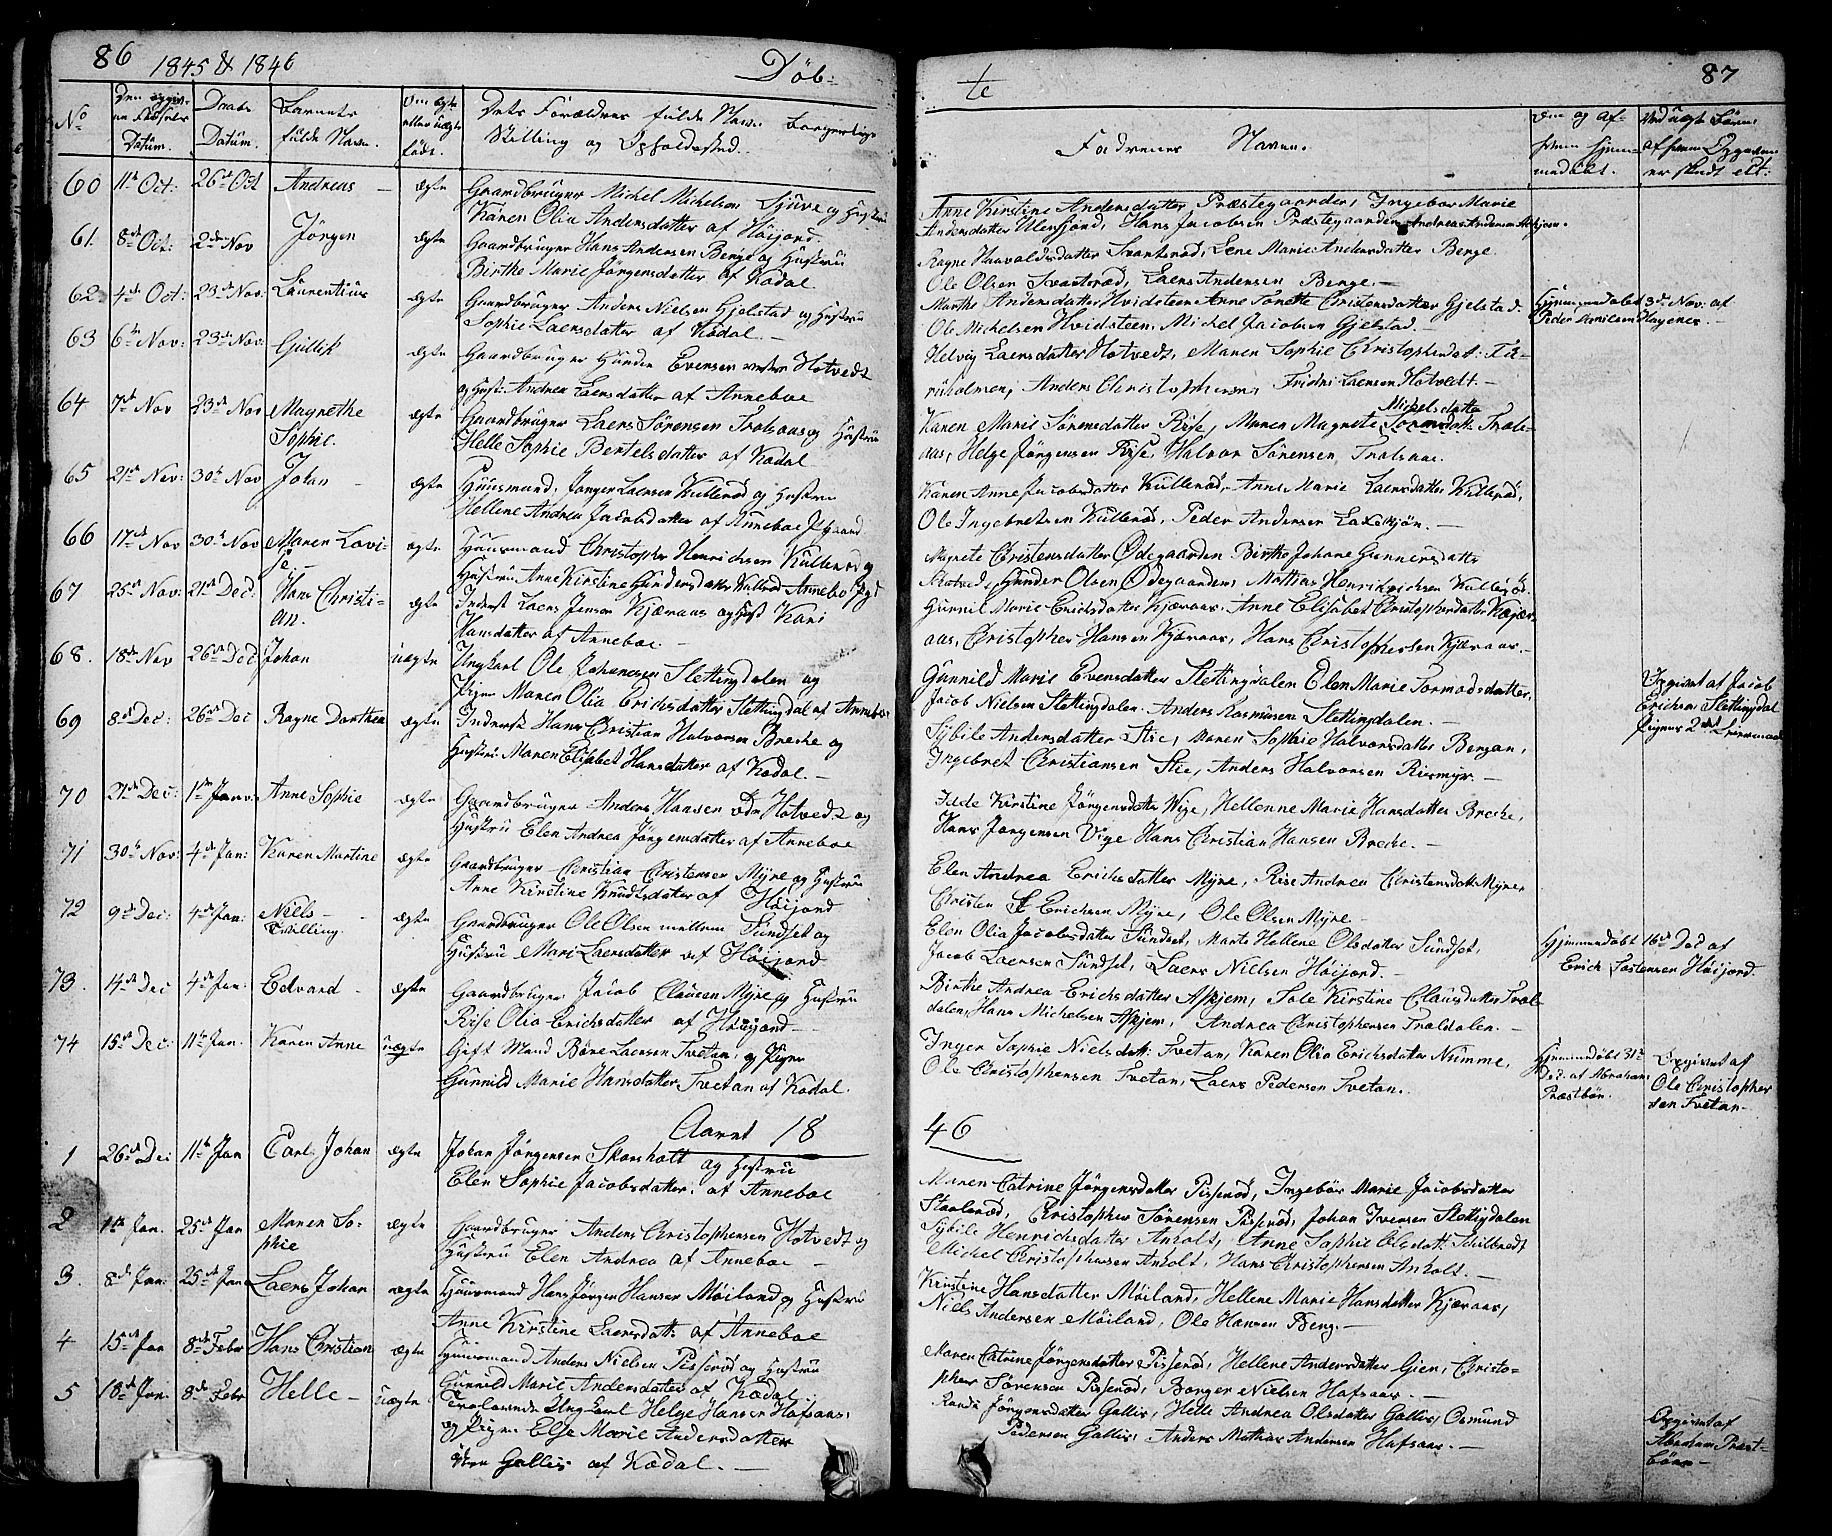 86 1845 & 1846 Döb-
No Den opgiv- Daabs Barnets Om ægte Dets Forældres fulde Navn borgerlige
ne Födsels Datum. fulde Navn. eller uægte Stilling og Opholdssted.
Datum. födt.
60 11te Oct: 26de Oct Andreas ægte Gaardbruger Michel Michelsen og Hustru
Karen Olia Andersdatter af Höijord.
61. 8de Oct: 2den Nov Jörgen ægte Gaardbruger Hans Andersen Berge og Hustru
Birthe Marie Jörgensdatter af Kodal
62 4de Oct: 23de Nov: Laurentius ægte Gaardbruger Anders Nielsen Gjelstad og Hustru
Sophie Laersdatter af Kodal. -
63 6te Nov: 23de Nov: Gullik ægte Gaardbruger Gunder Evensen Hotvedt
og Hust: Andrea Laersdatter af Anneboe
64 7de Nov 23de Nov Magrethe ægte Gaardbruger Laers Sörensen og Hustru
Sophie. Helle Sophie Bertelsdatter af Kodal
65 21de Nov: 30te Nov Johan - ægte Huusmand Laersen Kulleröd og Hustru
Hellene Andrea Jacobsdatter af Anneboe
66 17de Nov 30te Nov Maren Lovi- ægte Huusmand Christopher Henrichsen Kulleröd og
se. Hustru Anne Kirstine Gundersdatter Kulleröd Anneboe
67 25de Nov: 21de Dec: Hans Christi- ægte Inderst Laers Jensen Kjæraas og Hust Kari
an. Hansdatter af Anneboe. -
68. 18de Nov 26de Dec Johan uægte Ungkarl Ole Johannesen Slettingdalen og
Pigen Maren Olia Erichsdatter Slettingdal af Anneboe
69 8de Dec: 26de Dec Ragne Dorthea ægte Inderst Hans Christian Halvorsen Breche og
Hustru Maren Elisabet Hansdatter af Kodal. -
70 21de Dec: 1ste Janv: Anne Sophie ægte Gaardbruger Anders Hansen Hotvedt og
Hustru Elen Andrea Jörgensdatter af Anneboe
71 30te Nov: 4de Jan: Karen Martine ægte Gaardbruger Christian Christensen Myre og Hustru
Anne Kirstine Knudtsdatter af Höijord
72 9de Dec: 4de Jan: Niels - ægte Gaardbruger Ole Olsen mellem Sundset og
Tvilling. Hustru Mari Laersdatter af Höijord
73. 14de Dec 4de Jan: Edvard - ægte Gaardbruger Jacob Clausen Myre og Hustru
Risе Olia Erichsdatter af Höijord -
74 15de Dec: 11te Jan. Karen Anne uægte Gift Mand Börre Laersen Tvetan, og Pigen
Gunnild Marie Hansdatter Tvetan af Kodal.
Aaret 18
1 26de Dec 11te Jan Carl Johan ægte Johan Jörgensen Skorsholt og Hustru
Elen Sophie Jacobsdatter. af Anneboe
2 Jan. 25de Jan Maren So- ægte Gaardbruger Anders Christophersen Hotvedt og
phie Hustru Elen Andrea af Anneboe -
3. 8de Jan: 25de Jan Laers Johan ægte Huusmand Hans Jörgen Hansen Möiland og Hustru
Anne Kirstine Laersdatt: af Anneboe
4 15de Jan 8de Febr Hans Christian ægte Huusmand Anders Nielsen Pisseröd og Hustru
Gunnild Marie Andersdatter af Kodal
5 18de Jan: 8de Febr Helle - uægte Ungkarl Helge Hansen Hafsaas,
og Pigen Else Marie Andersdatter
Gallis af Kodal. -
te 87
Fadrenes Navne. Om og af Ved uægte Börn:
hvem hjem- af hvem Opgaven
medöbt. er skedt etc:
Anne Kirstine Andersdatter Præstegaarden, Ingebor Marie
Andersdatter Hans Jacobsen Præstegaarden, Andreas Andersen Askjem.
Ragne Haavaldsdatter Svartsröd, Lene Marie Andersdatter Berge
Ole Olsen Svartsröd, Laers Andersen Berge. -
Marthe Andersdatter Hvidsteen, Anne Tonette Christensdatter Gjelstad. Hjemmedöbt 3de Nov: af
Ole Michelsen Hvidsteen, Michel Jacobsen Gjelstad. - Peder Hagenes. -
Helvig Laersdatter Hotvedt, Maren Sophie Christophersdat: Fu-
ruholmen, Anders Christophersen, Fridric Laersen Hotvedt. -
Michelsdatter
Karen Marie Sörensdatter Riise, Maren Magrete Trols-
aas, Helge Jörgensen Riise, Halvor Sörensen Trolsaas.
Karen Anne Jacobsdatter Kulleröd, Anne Marie Laersdatter Kulleröd,
Ole Ingebretsen Kulleröd, Peder Andersen Laxekjön. -
Magrete Christensdatter Ödegaarden Birthe Johane Gunnersdatter
Gunder Olsen Ödegaarden, Mathias Henrichsen Kulleröd.
Gunnil Marie Erichsdatter Kjæraas, Anne Elisabet Christophersdatter Kjær-
aas, Christopher Hansen Kjæraas, Hans Christophersen Kjæraas. -
Gunnild Marie Evensdatter Slettingdalen Elen Marie Tormodsdatter, Opgivet af Jacob
Jacob Nielsen Slettingdalen. Anders Rasmusen Slettingdalen. - Erichsen Slettingdal
Pigens 2det Leiermaal
Sybile Andersdatter Stie, Maren Sophie Halvorsdatter Bergan,
Ingebret Christiansen Stie, Anders Halvorsen Rismyr. -
Kirstine Jörgensdatter Vige, Hellenne Marie Hansdatter Breche,
Hans Jörgensen Vige Hans Christian Hansen Breche. -
Elen Andrea Erichsdatter Myre, Rise Andrea Christensdatt: Myre,
Christen Erichsen Myre, Ole Olsen Myre -
Elen Olia Jacobsdatter Sundset, Marte Hellene Olsdatter Sundset, Hjemmedöbt 16de Dec af
Jacob Laersen Sundset, Laers Nielsen Höijord. - Erich Tostensen Höijord.
Birthe Andrea Erichsdatter Askjem, Kirstine Clausdatter Træl-
dalen, Hans Michelsen Askjem, Andrea Christophersen Trældalen. -
Inger Sophie Nielsdatt: Tvetan, Karen Olia Erichsdatter Numme, Hjemmedöbt 31te Opgivet af
Ole Christophersen Tvetan, Laers Pedersen Tvetan. Dec: af Abraham Ole Christopher
Præstbön. sen Tvetan -
46
Maren Catrine Jörgensdatter Pisseröd, Ingebör Marie Jacobsdatter
Christopher Sörensen Pisseröd, Johan Iversen Slettigdalen
Sybile Henrichsdatter Anholt, Anne Sophie Olsdatt:
Michel Christophersen Anholt, Hans Christophersen Anholt. -
Kirstine Hansdatter Möiland, Hellene Marie Hansdatter Kjæraas,
Niels Andersen Möiland, Ole Hansen Berg. -
Maren Catrine Jörgensdatter Pisseröd, Hellene Andersdatter Gien, Christo-
pher Sörensen Pisseröd, Borger Nielsen Hafsaas. -
Randi Jörgensdatter Gallis, Helle Andrea Olsdatter Gallis, Osmund Opgivet af
Pedersen Gallis, Anders Mathias Andersen Hafsaas. - Abraham Præst-
böen -